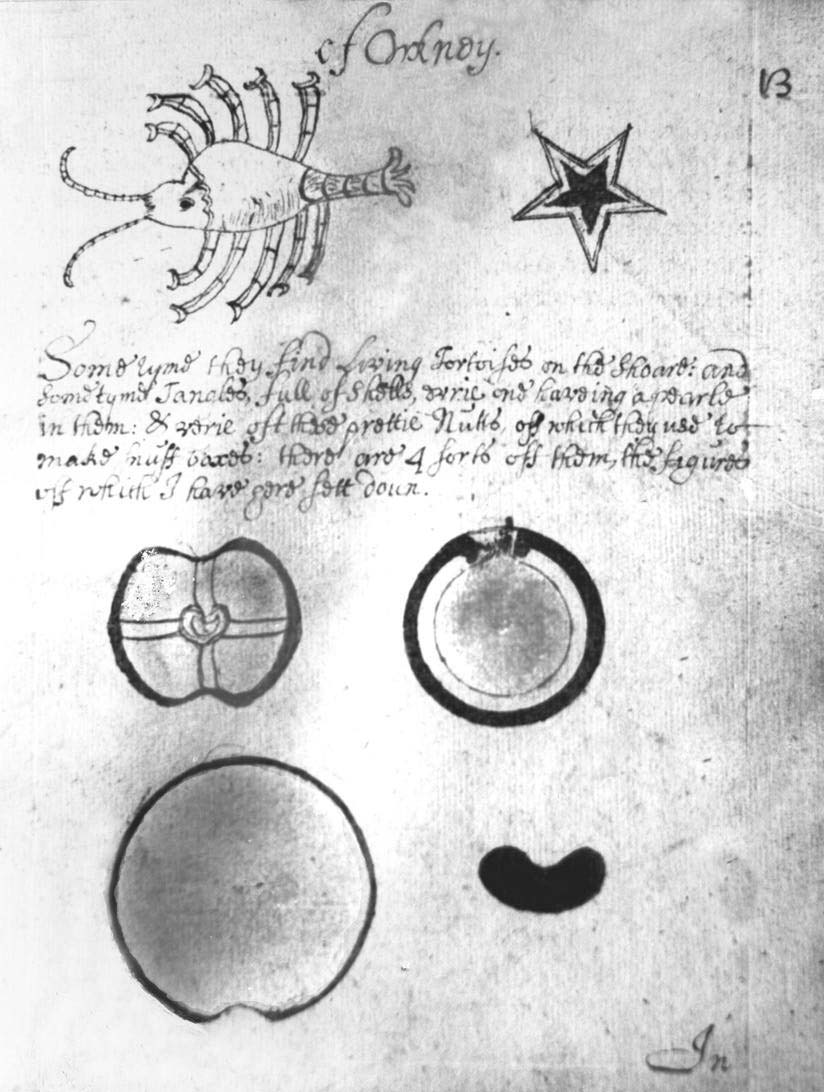 of Orknoy.
13
Some tyme they find living Tortoises on the shoare: and
sometyme Tangles, full of shells, evrie one haveing a pearle
in them: & verie oft these prettie Nutts, off which they use to
make snuff boxes: there are 4 sorts off them, the figures
off which I have here sett doun.
In